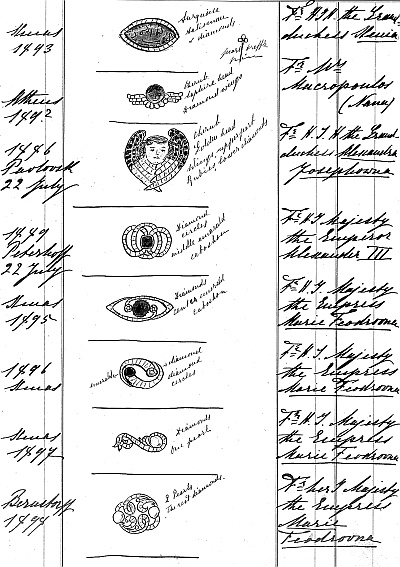 Xmas
1893
turquoise
&
diamonds
Fr H.I.H. the Grand
duchess Xenia
Athens
1892
cherub
sapphire head
diamond wings
Fr Mrs
Macropoulos
(Nana)
1886
Pavlovsk
22 July
cherub
head
wings, upper part
Rubies, lower diamonds
Fr H.I.H the Grand
duchess Alexandra
Josephowna
1889
Peterhoff
22 July
Diamond
circles
middle emerald
cabochon
Fr H.I. Majesty
the Emperor
Alexander III
Xmas
1895
Diamonds
center emerald
cabochon
Fr H.I. Majesty
the Empress
Marie Feodrovna
1896
Xmas
diamond
diamond
circles
Fr H.I. Majesty
the Empress
Marie Feodrovna
Xmas
1897
Diamonds
One pearl
Fr H.I. Majesty
the Empress
Marie Feodrovna
Bernstorff
1899
2 Pearls
The rest diamonds.
Fr her I Majesty
the Empress
Marie
Feodrovna